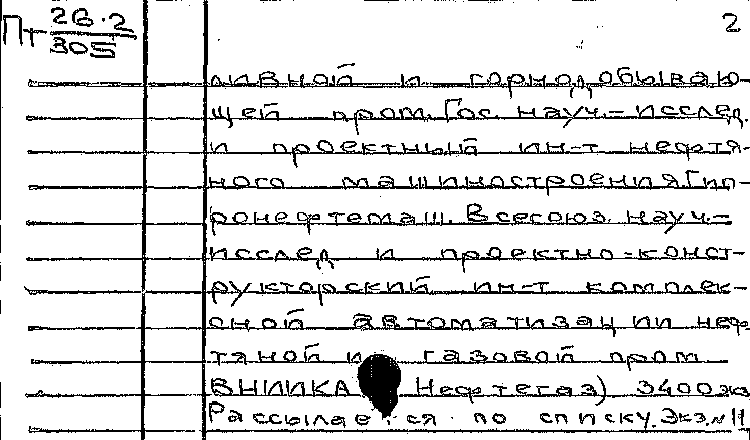 Пт 26.2
305
2
ливной и горнодобываю-
щей пром. Гос. науч.-исслед.
и проектный ин-т нефтя-
ного машиностроения. Гип-
ронефтемаш. Всесоюз. науч.-
исслед и проектно-конст-
рукторский ин-т комплек-
сной автоматизации неф-
тяной и газовой пром
ВНИИКА Нефтегаз) 3400экз
Рассылается по списку. Экз. №11